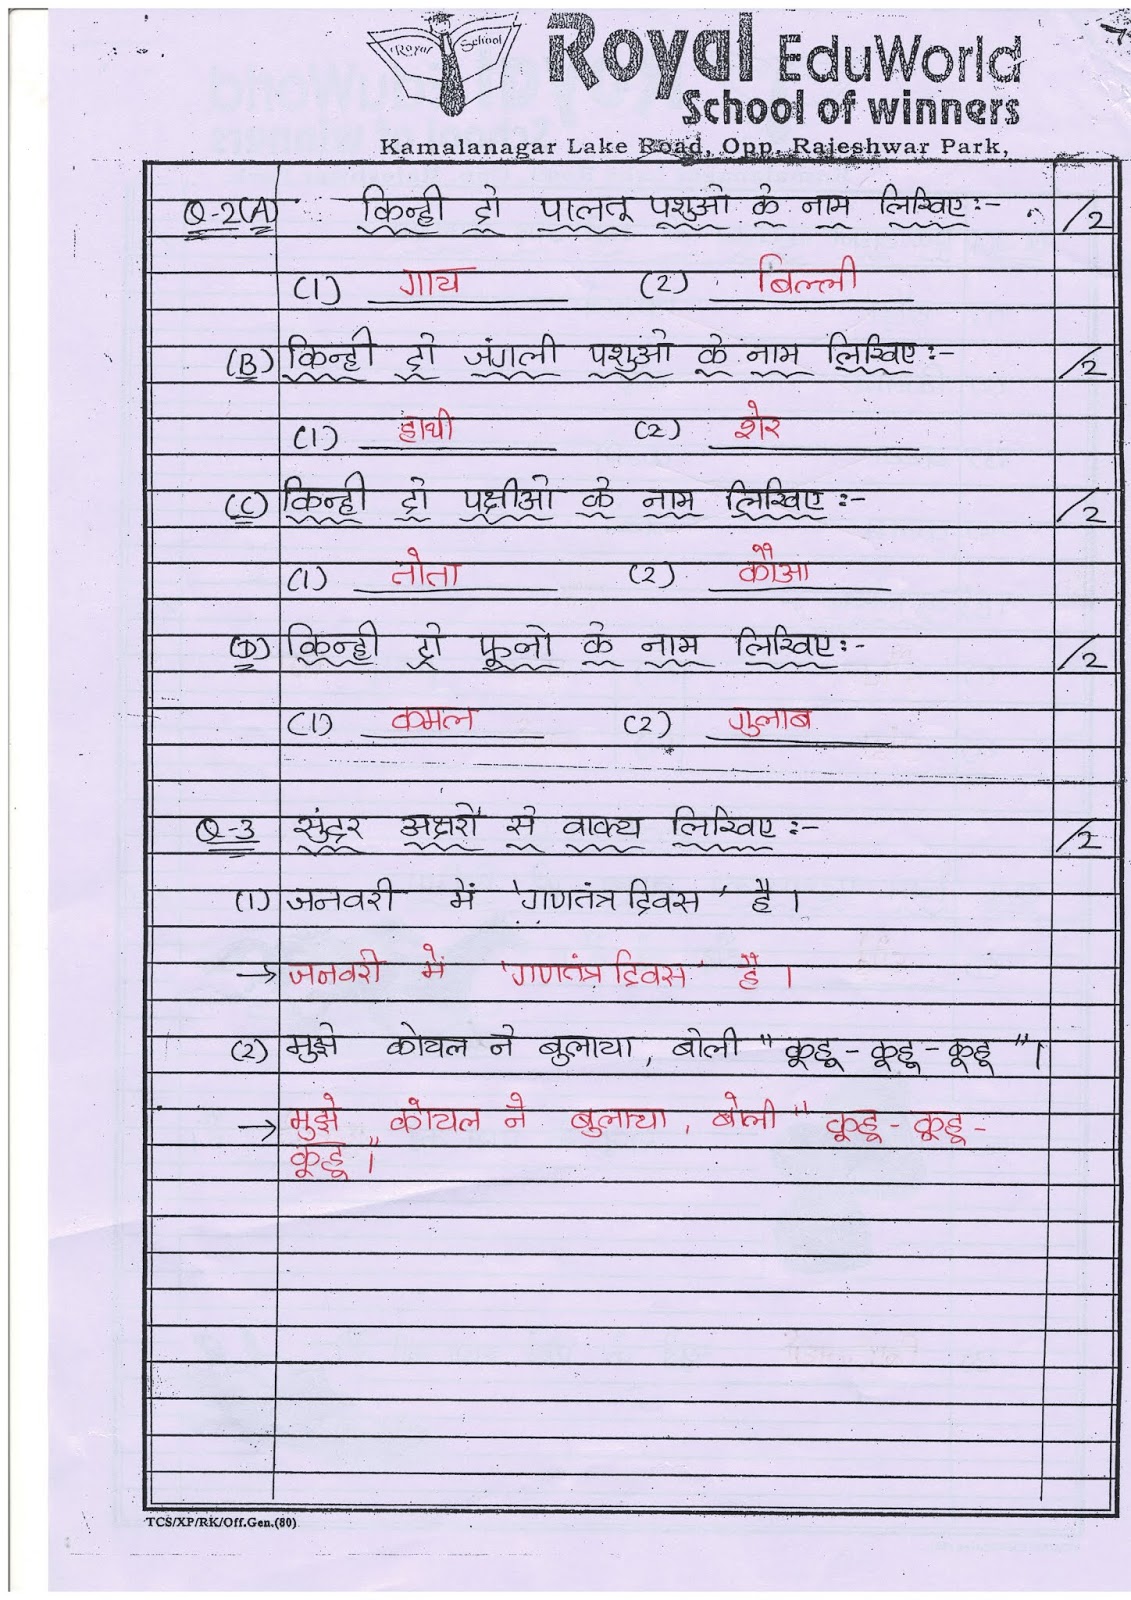 Royal School
Royal EduWorld
School of winners
Kamalanagar Lake Road, Opp. Rajeshwar Park,
Q-2(A) किन्ही दो पालतू पशुओ के नाम लिखिए :- /2
(1) गाय (2) बिल्ली
(B) किन्ही दो जंगली पशुओ के नाम लिखिए :- /2
(1) हाथी (2) शेर
(C) किन्ही दो पक्षीओ के नाम लिखिए :- /2
(1) तोता (2) कौआ
(D) किन्ही दो फूलो के नाम लिखिए :- /2
(1) कमल (2) गुलाब
Q-3 सुंदर अक्षरों से वाक्य लिखिए :- /2
(1) जनवरी में 'गणतंत्र दिवस' है।
→ जनवरी में 'गणतंत्र दिवस' है।
(2) मुझे कोयल ने बुलाया, बोली "कूहू - कूहू - कूहू"।
→ मुझे कोयल ने बुलाया, बोली "कूहू - कूहू -
कूहू"।
TCS/XP/RK/Off.Gen.(80)